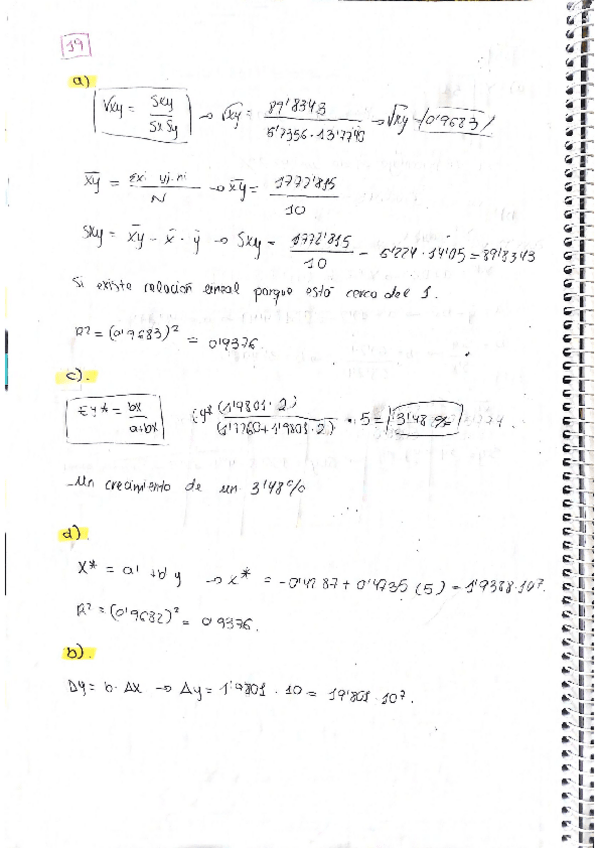 19
a)
rxy = Sxy / SxSy → rxy = 89'8343 / 6'7356 · 13'7748 → rxy = 0'9683
xy = Σxi · yj · ni / N → xy = 1772'815 / 10
Sxy = xy - x · y → Sxy = 1772'815 / 10 - 6'224 · 14'05 = 89'8343
Si existe relación lineal porque está cerca del 1.
R² = (0'9683)² = 0'9376
c).
Ey* = bx / a+bx (1'9801 · 2) / (1'7260 + 1'9801 · 2) · 5 = 3'48 %
- Un crecimiento de un 3'48 %
d).
x* = a' + b' y → x* = -0'4287 + 0'4735 (5) = 1'9388 · 10³.
R² = (0'9682)² = 0'9376.
b).
Δy = b · Δx → Δy = 1'9801 · 10 = 19'801 · 10³.